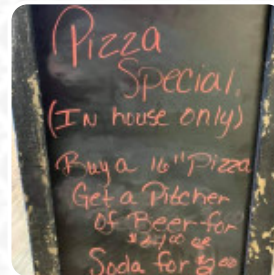 Pizza
Special.
(In house only)
Buy a 16" Pizza
Get a Pitcher
Of Beer for
or
Soda for